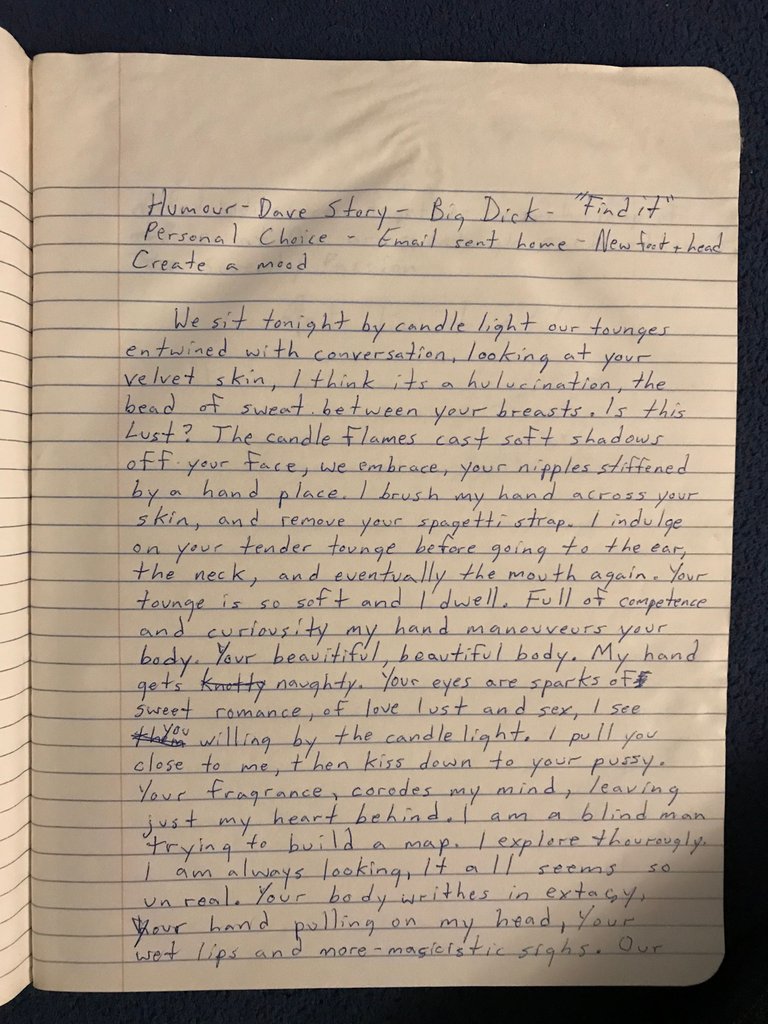 Humour - Dave Story - Big Dick - "Find it"
Personal Choice - Email sent home - New foot + head
Create a mood
We sit tonight by candle light our tounges
entwined with conversation, looking at your
velvet skin, I think its a hulucination, the
bead of sweat between your breasts. Is this
Lust? The candle flames cast soft shadows
off your face, we embrace, your nipples stiffened
by a hand place. I brush my hand across your
skin, and remove your spagetti strap. I indulge
on your tender tounge before going to the ear,
the neck, and eventually the mouth again. Your
tounge is so soft and I dwell. Full of competence
and curiousity my hand manouveurs your
body. Your beauitiful, beautiful body. My hand
gets knotty naughty. Your eyes are sparks of
sweet romance, of love lust and sex, I see
them you willing by the candle light. I pull you
close to me, then kiss down to your pussy.
Your fragrance, corodes my mind, leaving
just my heart behind. I am a blind man
trying to build a map. I explore thourougly.
I am always looking, It all seems so
un real. Your body writhes in extacy,
Your hand pulling on my head, Your
wet lips and more-magicistic sighs. Our